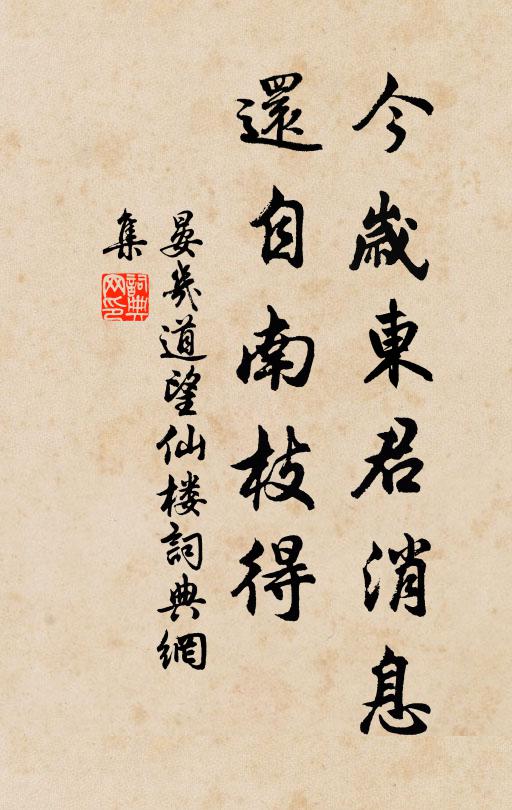 今歲東君消息
還自南枝得
晏幾道望仙楼詞典網
集
詞典
网印